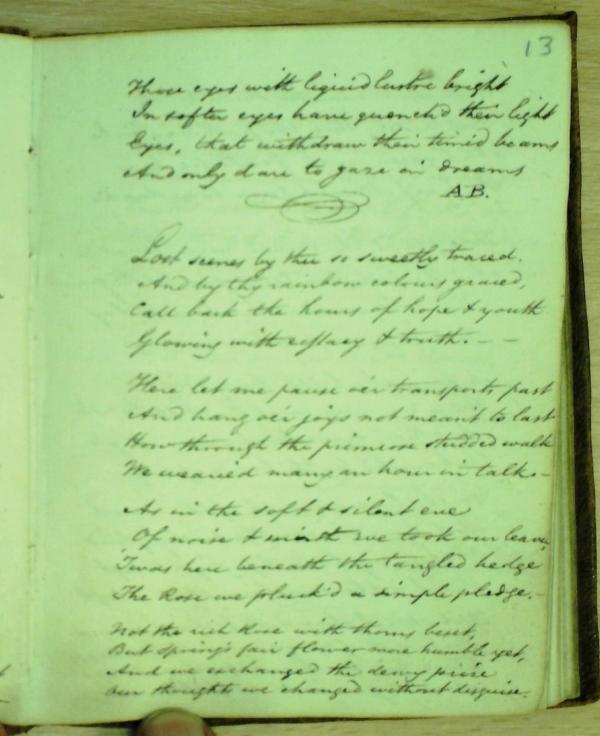 13
Those eyes with liquid lustre bright
In softer eyes have quench'd their light
Eyes, that withdraw their timid beams
And only dare to gaze in dreams
A.B.
Lost scenes by thee so sweetly traced.
And by thy rainbow colours graced,
Call back the hours of hope & youth
Glowing with extacy & truth. - -
Here let me pause o'er transports past
And hang o'er joys not meant to last
How through the primrose studded walk
We wearied many an hour in talk -
As in the soft & silent eve
Of noise & mirth we took our leave,
'Twas here beneath the tangled hedge
The Rose we pluck'd a simple pledge. -
Not the rich Rose with thorns beset,
But Spring's fair flower more humble yet,
And we exchanged the dewy prize
Our thoughts we changed without disguise.